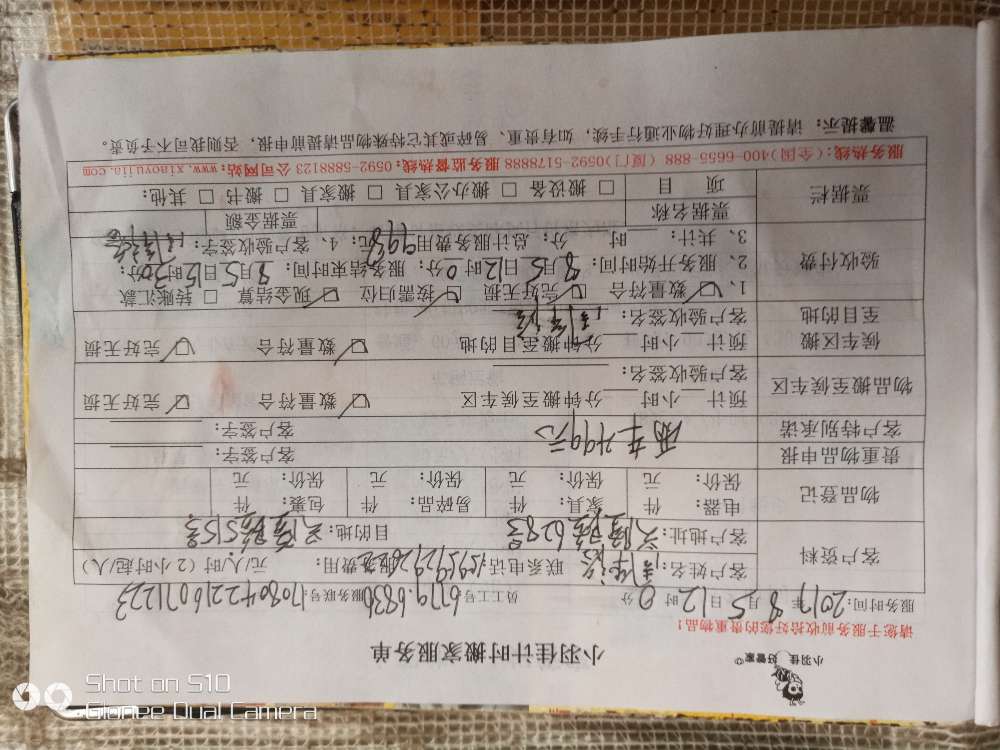 小羽佳 好管家
小羽佳计时搬家服务单
请您于服务前收拾好您的贵重物品！
服务时间：2017 年 8 月 5 日 12 时 0 分 员工工号 6779.6836 服务联号：170804221607 1223
客户资料
客户姓名： 联系电话： 服务费用： 元/人/时（2小时/起/人）
客户地址： 628号 目的地： 515号
物品登记
电器： 件 家具： 件 易碎品： 件 包裹： 件
保价： 元 保价： 元 保价： 元 保价： 元
贵重物品申报 客户签字：
客户特别承诺 两车499元 客户签字：
物品搬至候车区
预计 小时 分钟搬至候车区 ☑ 数量符合 ☑ 完好无损
客户验收签名：
候车区搬至目的地
预计 小时 分钟搬至目的地 ☑ 数量符合 ☑ 完好无损
客户验收签名：
验收付费
1、☑ 数量符合 ☑ 完好无损 ☑ 按需归位 ☑ 现金结算 □ 转账汇款
2、服务开始时间：8 月 5 日 12 时 0 分；服务结束时间：8 月 5 日 15 时 30 分；
3、共计： 时 分；总计服务费用 998 元；4、客户验收签字：
票据栏
票据名称 票据金额
项 目 □ 搬设备 □ 搬办公家具 □ 搬家具 □ 搬书 □ 其他：
服务热线：(全国)400-6655-888 (厦门)0592-5178898 服务监督热线：0592-5888123 公司网站：www.xiaoyujia.com
温馨提示：请提前办理好物业通行手续，如有贵重、易碎或其它特殊物品请提前申报，否则我司不予负责。
Shot on S10
Gionee Dual Camera